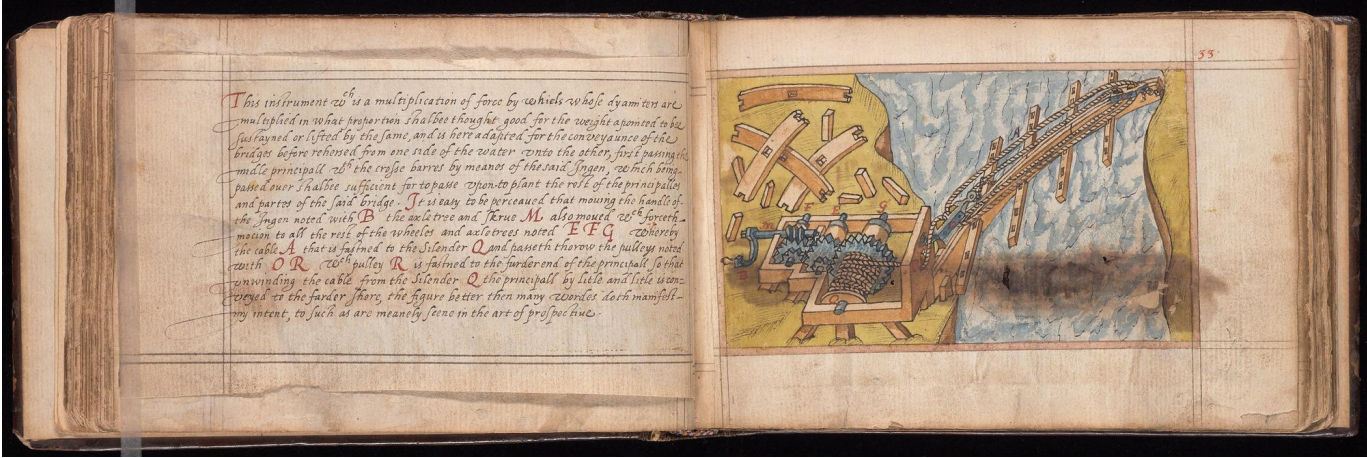 This instrument wch is a multiplication of force by whiels whose dyamiters are
multiplied in what proportion shalbee thought good for the weight apointed to bee
sustayned or lifted by the same, and is here adapted for the conveyaunce of the
bridges before rehersed from one side of the water vnto the other, first passing the
midle principall wth the crosse barres by meanes of the said Ingen, which being
passed over shalbee sufficient for to passe vpon to plant the rest of the principalles
and partes of the said bridge. It is easy to be perceaved that moving the handle of
the Ingen noted with B the axletree and skrue M also moved wch forceth
motion to all the rest of the wheeles and axletrees noted E F G whereby
the cable A that is fastned to the Silender Q and passeth thorow the pulleys noted
with O R wch pulley R is fastned to the furder end of the principall so that
vnwinding the cable from the Silender Q the principall by litle and litle is con=
veyed to the farder shore, the figure better then many wordes doth manifest
my intent, to such as are meanely seene in the art of prospective.
55
F E G
B
A
Q